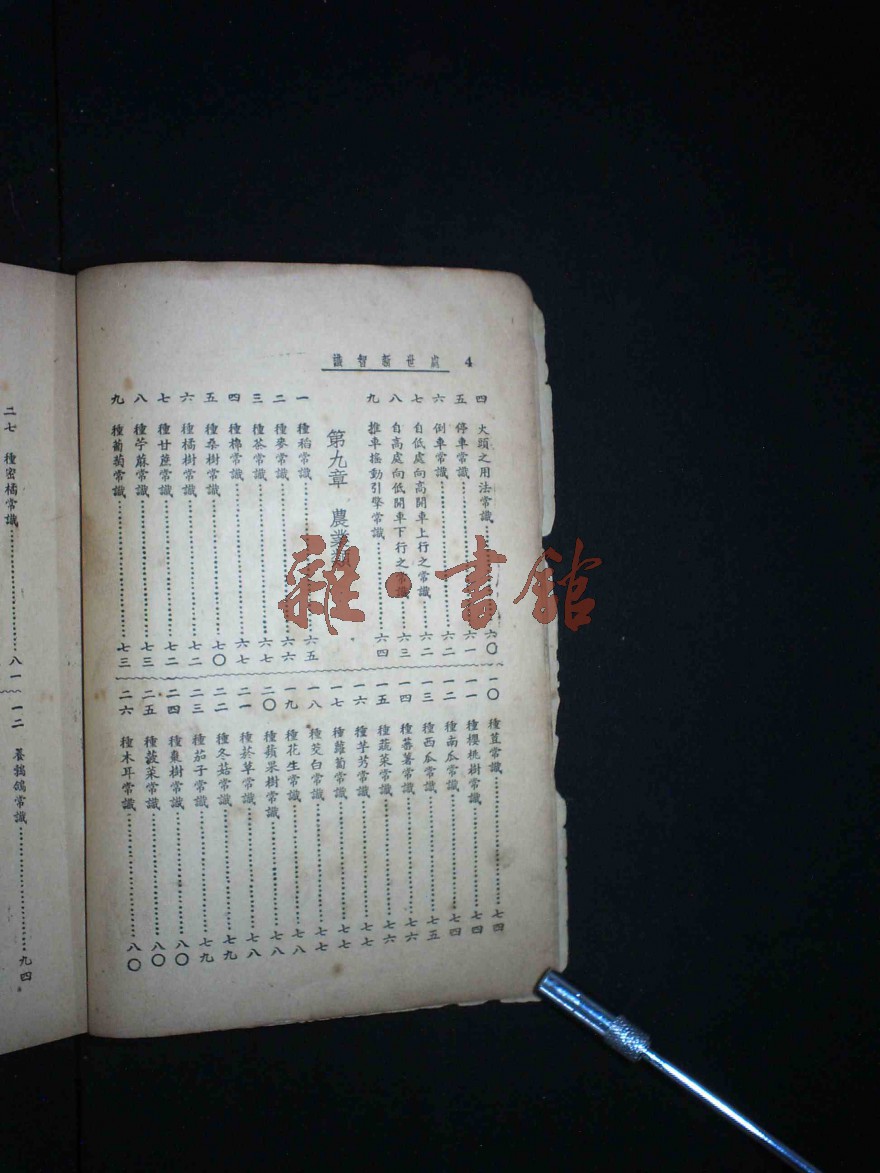 處世新智識 4
四 火頭之用法常識……六〇
五 停車常識……六一
六 倒車常識……六二
七 自低處向高開車上行之常識……六二
八 自高處向低開車下行之常識……六三
九 推車搖動引擎常識……六四
第九章 農業類
一 種稻常識……六五
二 種麥常識……六六
三 種茶常識……六七
四 種棉常識……六七
五 種桑樹常識……七〇
六 種橘樹常識……七二
七 種甘蔗常識……七二
八 種苧蔴常識……七三
九 種葡萄常識……七三
一〇 種荳常識……七四
一一 種櫻桃樹常識……七四
一二 種南瓜常識……七四
一三 種西瓜常識……七五
一四 種蕃薯常識……七六
一五 種蔬菜常識……七六
一六 種芋艿常識……七七
一七 種蘿蔔常識……七七
一八 種茭白常識……七七
一九 種花生常識……七八
二〇 種蘋果樹常識……七八
二一 種菸草常識……七八
二二 種冬菇常識……七九
二三 種茄子常識……七九
二四 種棗樹常識……八〇
二五 種菠菜常識……八〇
二六 種木耳常識……八〇
二七 種蜜橘常識……八一
一二 養鵓鴿常識……九四
雜·書館